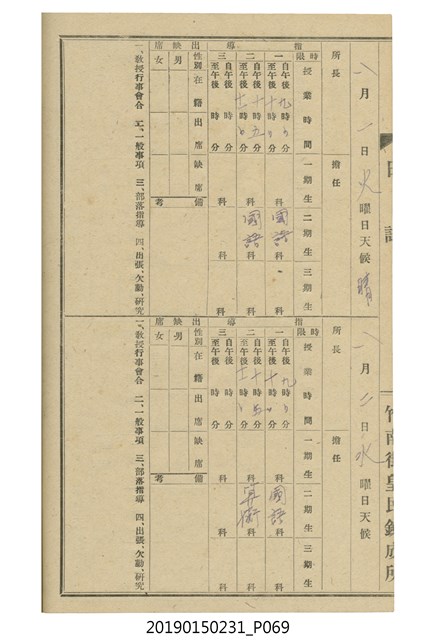 日誌
竹南街皇民鍊成所
八月一日火曜日天候晴
所長
擔任
指導
時限
授業時間
一期生
二期生
三期生
一
自午後九時分
至午後十時分
科
國語科
科
二
自午後十時五分
至午後十一時分
科
國語科
科
三
自午後時分
至午後時分
科
科
科
出缺席
性別
在籍
出席
缺席
備考
男
女
一、教授行事會合 二、一般事項 三、部落指導 四、出張、欠勤、研究
八月二日水曜日天候
所長
擔任
指導
時限
授業時間
一期生
二期生
三期生
一
自午後九時分
至午後十時分
科
國語科
科
二
自午後十時五分
至午後十一時分
科
算術科
科
三
自午後時分
至午後時分
科
科
科
出缺席
性別
在籍
出席
缺席
備考
男
女
一、教授行事會合 二、一般事項 三、部落指導 四、出張、欠勤、研究
20190150231_P069